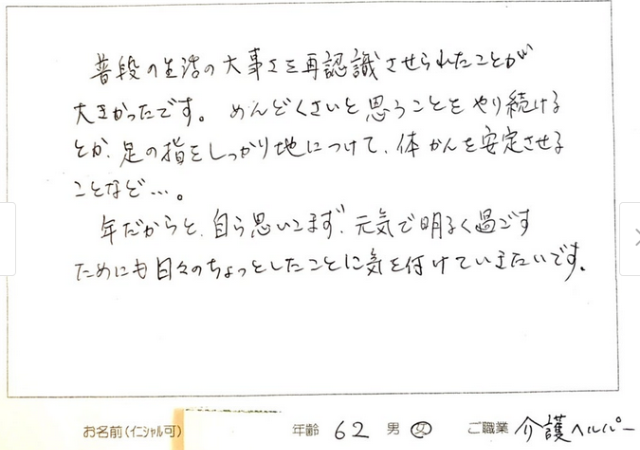 普段の生活の大事さを再認識させられたことが
大きかったです。めんどくさいと思うことをやり続ける
とか、足の指をしっかり地につけて、体かんを安定させる
ことなど…。
年だからと、自ら思いこまず、元気で明るく過ごす
ためにも日々のちょっとしたことに気を付けていきたいです。
お名前(イニシャル可) 年齢 62 男 女 ご職業 介護ヘルパー